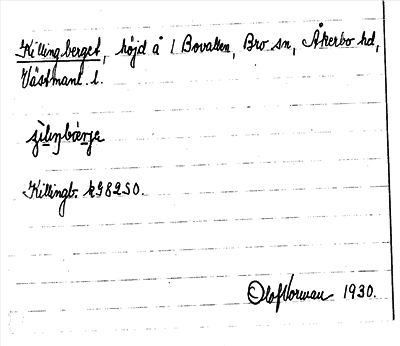 Killingberget, höjd å 1 Bovallen, Bro sn, Åkerbo hd,
Västmanl. l.
Killingb. kg 82 SO.
Olof Vorman 1930.